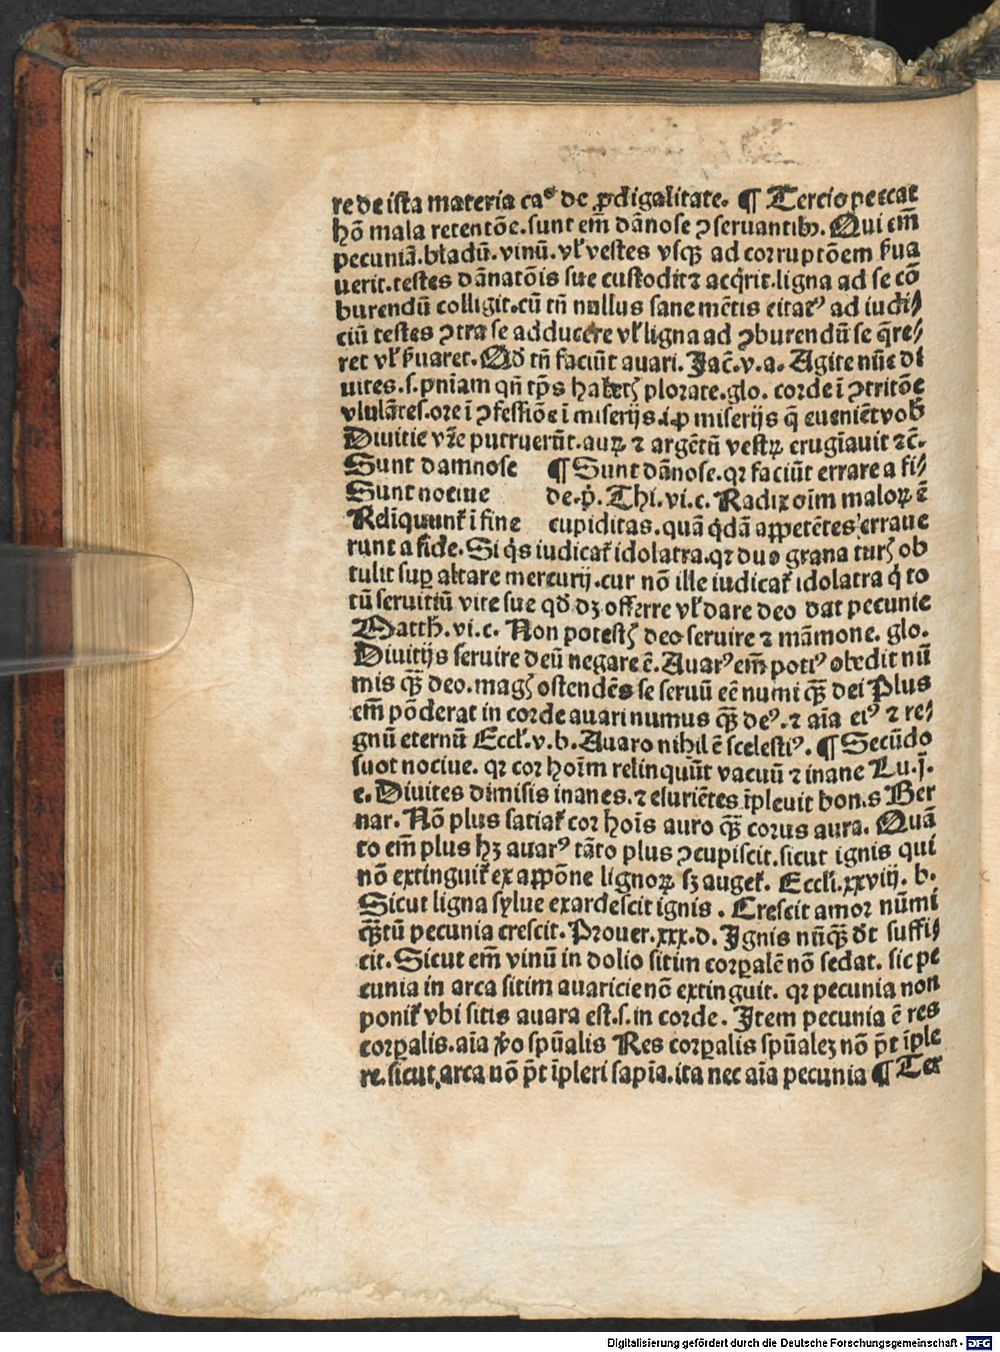 re de ista materia caº de ꝓdigalitate. ¶ Tercio peccat
hõ mala retentõe. sunt em̃ dãnose ꝯseruantibꝫ. Qui em̃
pecuniã. bladũ. vinũ. vl̛ vestes vsqꝫ ad corruptõem p̃ua
uerit. testes dãnatõis sue custodit ⁊ acq̃rit. ligna ad se cõ
burendũ colligit. cũ tñ nullus sane mẽtis citatꝰ ad iudi⸗
ciũ testes ꝯtra se adducere vl̛ ligna ad ꝯburendũ se q̃re⸗
ret vl̛ p̃uaret. Qđ tñ faciũt auari. Jac̃. v. a. Agite nũc di
uites. s. pniam qñ tp̃s habetꝭ plorate. glo. corde ĩ ꝯtritõe
vlulãtes. ore ĩ ꝯfessiõe ĩ miserijs. i. ꝓ miserijs q̃ eueniẽt vob̃
Diuitie vr̃e putruerũt. auꝝ ⁊ argẽtũ vestꝝ erugĩauit ⁊c̃.
Sunt damnose ¶ Sunt dãnose. qꝛ faciũt errare a fi⸗
Sunt nociue de. p̃. Thi. vi. c. Radix oim maloꝝ ẽ
Relĩquunt̛ ĩ fine cupiditas. quã q̃dã appetẽtes erraue
runt a fide. Si q̃s iudicat̛ idolatra. qꝛ duo grana turꝭ ob
tulit suꝑ altare mercurij. cur nõ ille iudicat̛ idolatra q̃ to
tũ seruitiũ vite sue qđ dꝫ offerre vl̛ dare deo dat pecunie
Matth̃. vi. c. Non potestꝭ deo seruire ⁊ mãmone. glo.
Diuitijs seruire deũ negare ẽ. Auarꝰ em̃ potiꝰ obedit nũ
mis q̃ꝫ deo. magꝭ ostendẽs se seruũ eẽ numi q̃ꝫ dei Plus
em̃ põderat in corde auari numus q̃ꝫ deꝰ. ⁊ aĩa eiꝰ ⁊ re⸗
gnũ eternũ Eccl̛. v. b. Auaro nihil ẽ scelestiꝰ. ¶ Secũdo
suot nociue. qꝛ cor hoĩm relinquũt vacuũ ⁊ inane Lu. j.
e. Diuites dimisis inanes. ⁊ esuriẽtes ĩpleuit bon.s Ber
nar. Nõ plus satiat̛ cor hoĩs auro q̃ꝫ corus aura. Quã
to em̃ plus hꝫ auarꝰ tãto plus ꝯcupiscit. sicut ignis qui
nõ extinguit̛ ex appõne lignoꝝ sꝫ auget̛. Eccl̛i. xxviij. b.
Sicut ligna sylue exardescit ignis. Crescit amor nũmi
q̃ꝫtũ pecunia crescit. Prouer. xxx. d. Ignis nũq̃ꝫ dt̃ suffi⸗
cit. Sicut em̃ vinũ in dolio sitim corꝑalẽ nõ sedat. sic pe
cunia in arca sitim auaricie nõ extinguit. qꝛ pecunia non
ponit̛ vbi sitis auara est. s. in corde. Item pecunia ẽ res
corꝑalis. aĩa ꝟo spũalis Res corꝑalis spũalez nõ pt̃ ĩple
re. sicut arca nõ pt̃ ĩpleri sapĩa. ita nec aĩa pecunia ¶ Ter
Digitalisierung gefördert durch die Deutsche Forschungsgemeinschaft - DFG